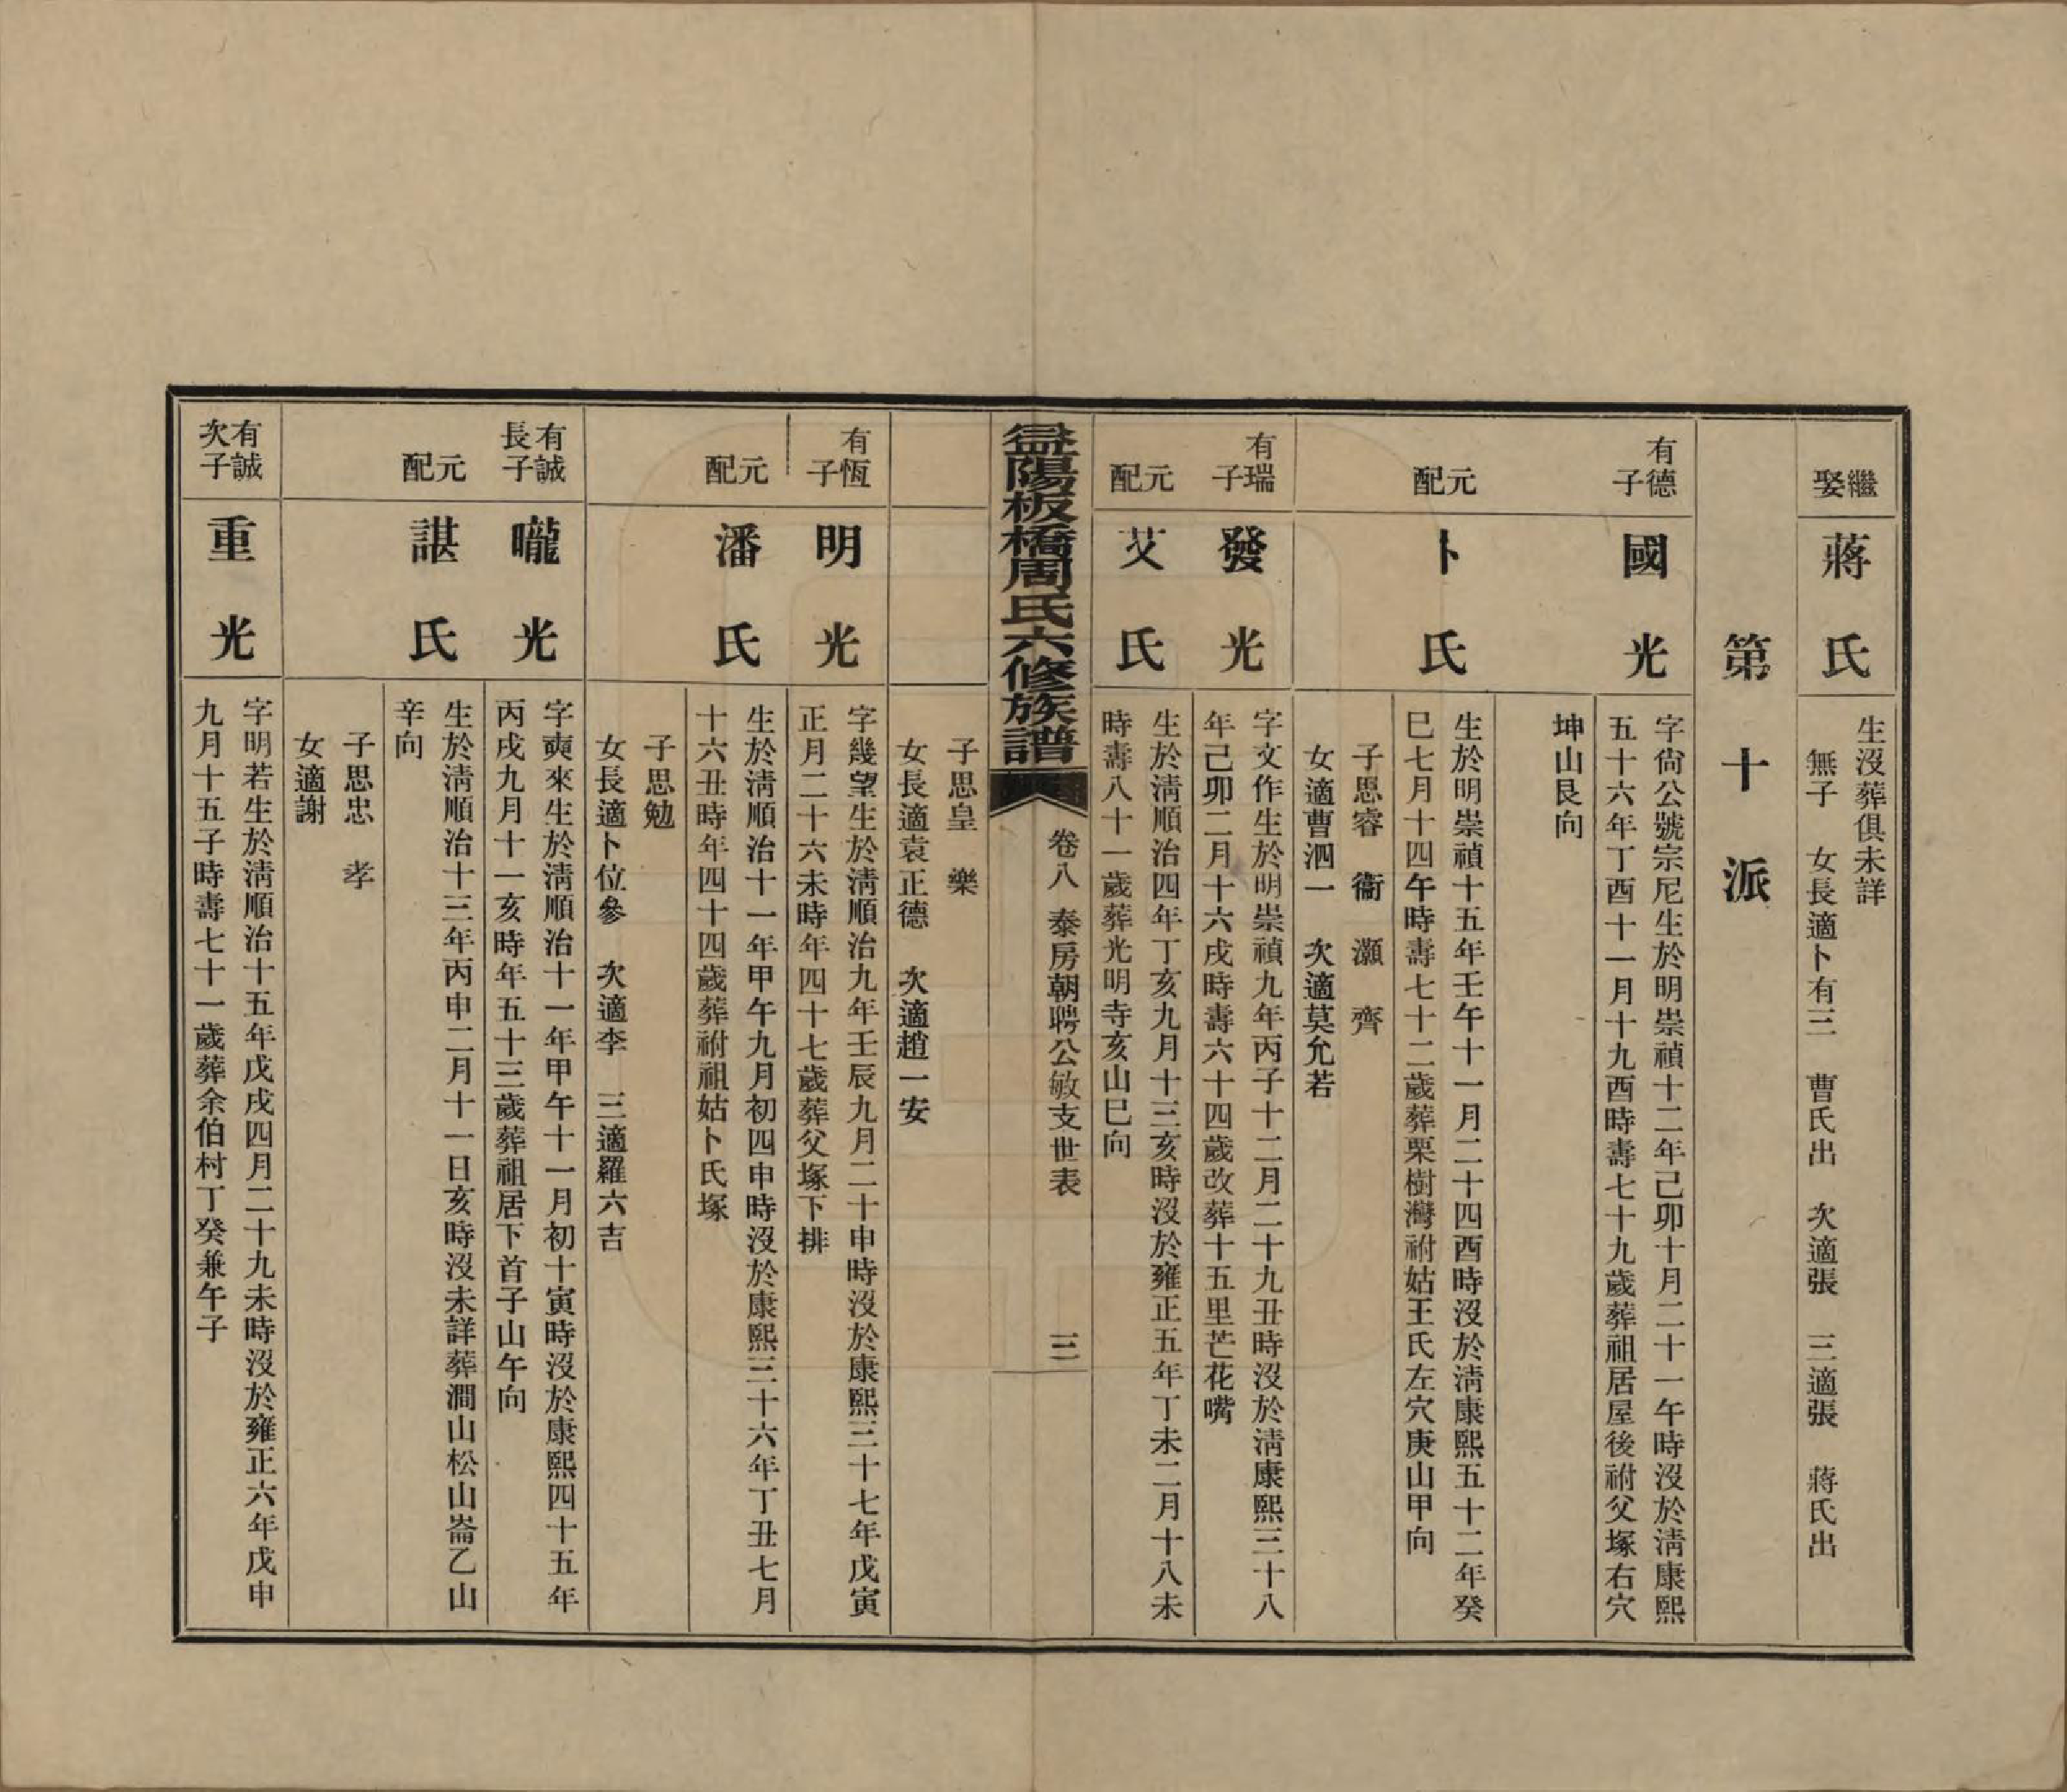 繼娶
蔣氏
生沒葬俱未詳
無子 女長適卜有三 曹氏出 次適張 三適張 蔣氏出
第十派
有德子
國光
字尙公號宗尼生於明崇禎十二年己卯十月二十一午時沒於淸康熙
五十六年丁酉十一月十九酉時壽七十九歲葬祖居屋後祔父塚右穴
坤山艮向
元配
卜氏
生於明崇禎十五年壬午十一月二十四酉時沒於淸康熙五十二年癸
巳七月十四午時壽七十二歲葬栗樹灣祔姑王氏左穴庚山甲向
子思睿 衞 灝 齊
女適曹泗一 次適莫允若
有瑞子
發光
字文作生於明崇禎九年丙子十二月二十九丑時沒於淸康熙三十八
年己卯二月十六戌時壽六十四歲改葬十五里芒花嘴
元配
艾氏
生於淸順治四年丁亥九月十三亥時沒於雍正五年丁未二月十八未
時壽八十一歲葬光明寺亥山巳向
益陽板橋周氏六修族譜
卷八 泰房朝聘公敏支世表
三
子思皇 樂
女長適袁正德 次適趙一安
有恆子
明光
字幾望生於淸順治九年壬辰九月二十申時沒於康熙三十七年戊寅
正月二十六未時年四十七歲葬父塚下排
元配
潘氏
生於淸順治十一年甲午九月初四申時沒於康熙三十六年丁丑七月
十六丑時年四十四歲葬祔祖姑卜氏塚
子思勉
女長適卜位參 次適李 三適羅六吉
有誠長子
曨光
字奭來生於淸順治十一年甲午十一月初十寅時沒於康熙四十五年
丙戌九月十一亥時年五十三歲葬祖居下首子山午向
元配
諶氏
生於淸順治十三年丙申二月十一日亥時沒未詳葬澗山松山崙乙山
辛向
子思忠 孝
女適謝
有誠次子
重光
字明若生於淸順治十五年戊戌四月二十九未時沒於雍正六年戊申
九月十五子時壽七十一歲葬余伯村丁癸兼午子